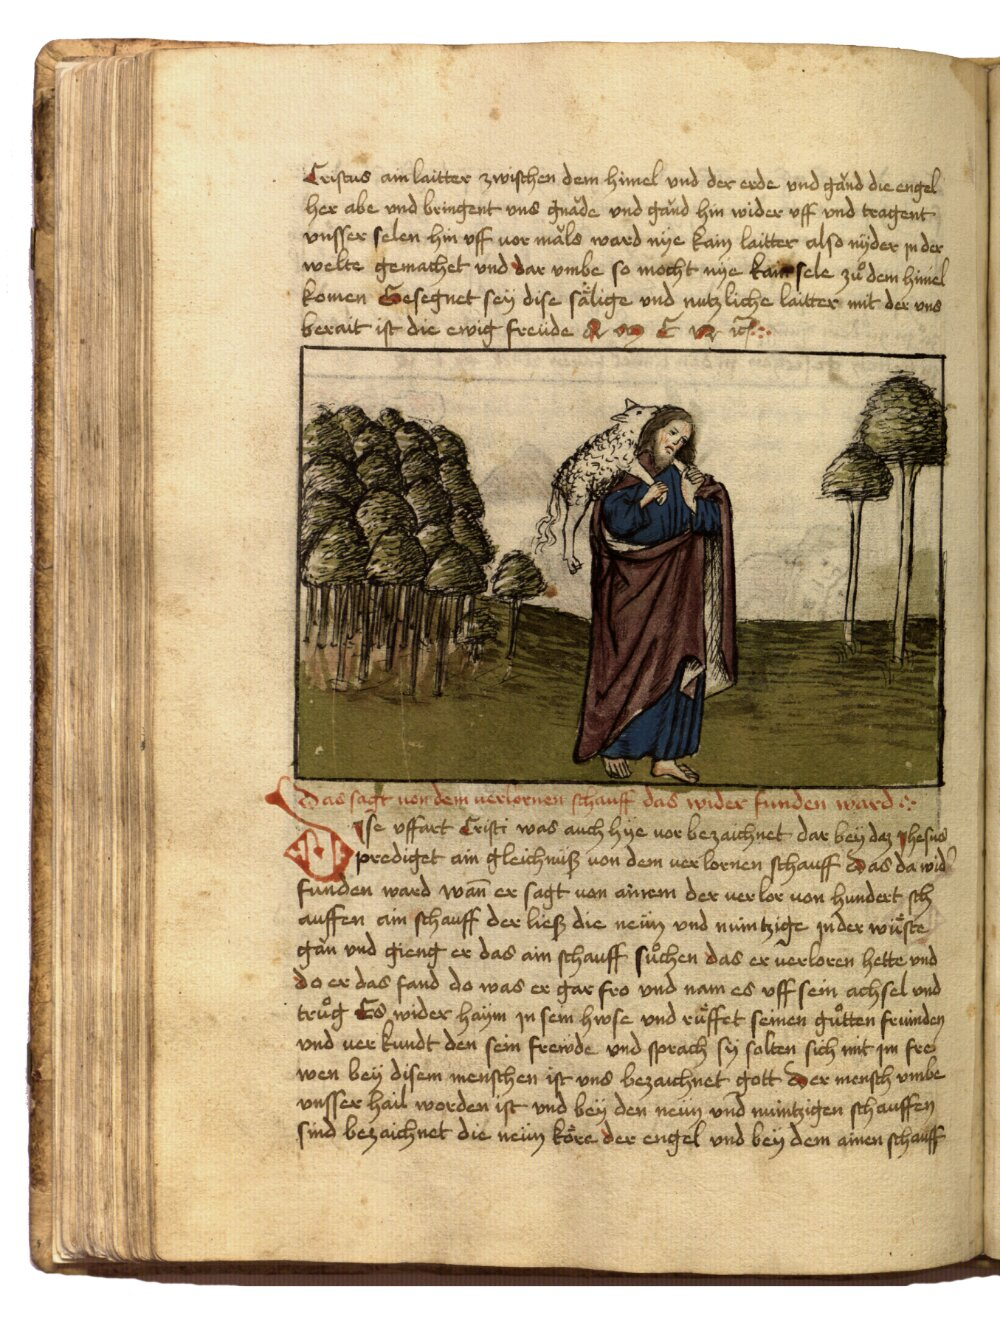 Cristus ain laitter zwischen dem himel vnd der erde vnd gänd die engel
her abe vnd bringent vns gnäde vnd gänd hin wider vff vnd tragent
vnsser selen hin vff vor mäls ward nÿe kain laitter also nÿder jn der
welte gemachet vnd dar vmbe so mocht nÿe kain sele zuͦ dem himel
komen Gesegnet seÿ dise sälige vnd nutzliche laitter mit der vns
berait ist die ewig freüde A M E N
Das sagt von dem verlornen schauff das wider funden ward
Dise vffart Cristi was auch hÿe vor bezaichnet dar beÿ daz Jhesus
prediget ain gleichnüß von dem verlornen schauff Das da wid
funden ward wan̄ er sagt von ainem der verlor von hundert sch
auffen ain schauff der ließ die neün vnd nüintzige in der wüͤste
gän vnd gieng er das ain schauff suͦchen das er verloren hette vnd
do er das fand do was er gar fro vnd nam es vff sein achsel vnd
truͦg Es wider haÿm jn sein hwse vnd ruͤffet seinen guͦtten fruinden
vnd verkundt den sein freẅde vnd sprach sÿ solten sich mit jm fre
wen beÿ disem menschen ist vns bezaichnet gott Der mensch vmbe
vnsser hail worden ist vnd beÿ den neün vnd nüintzigen schauffen
sind bezaichnet die neün köre der engel vnd beÿ dem ainen schauff